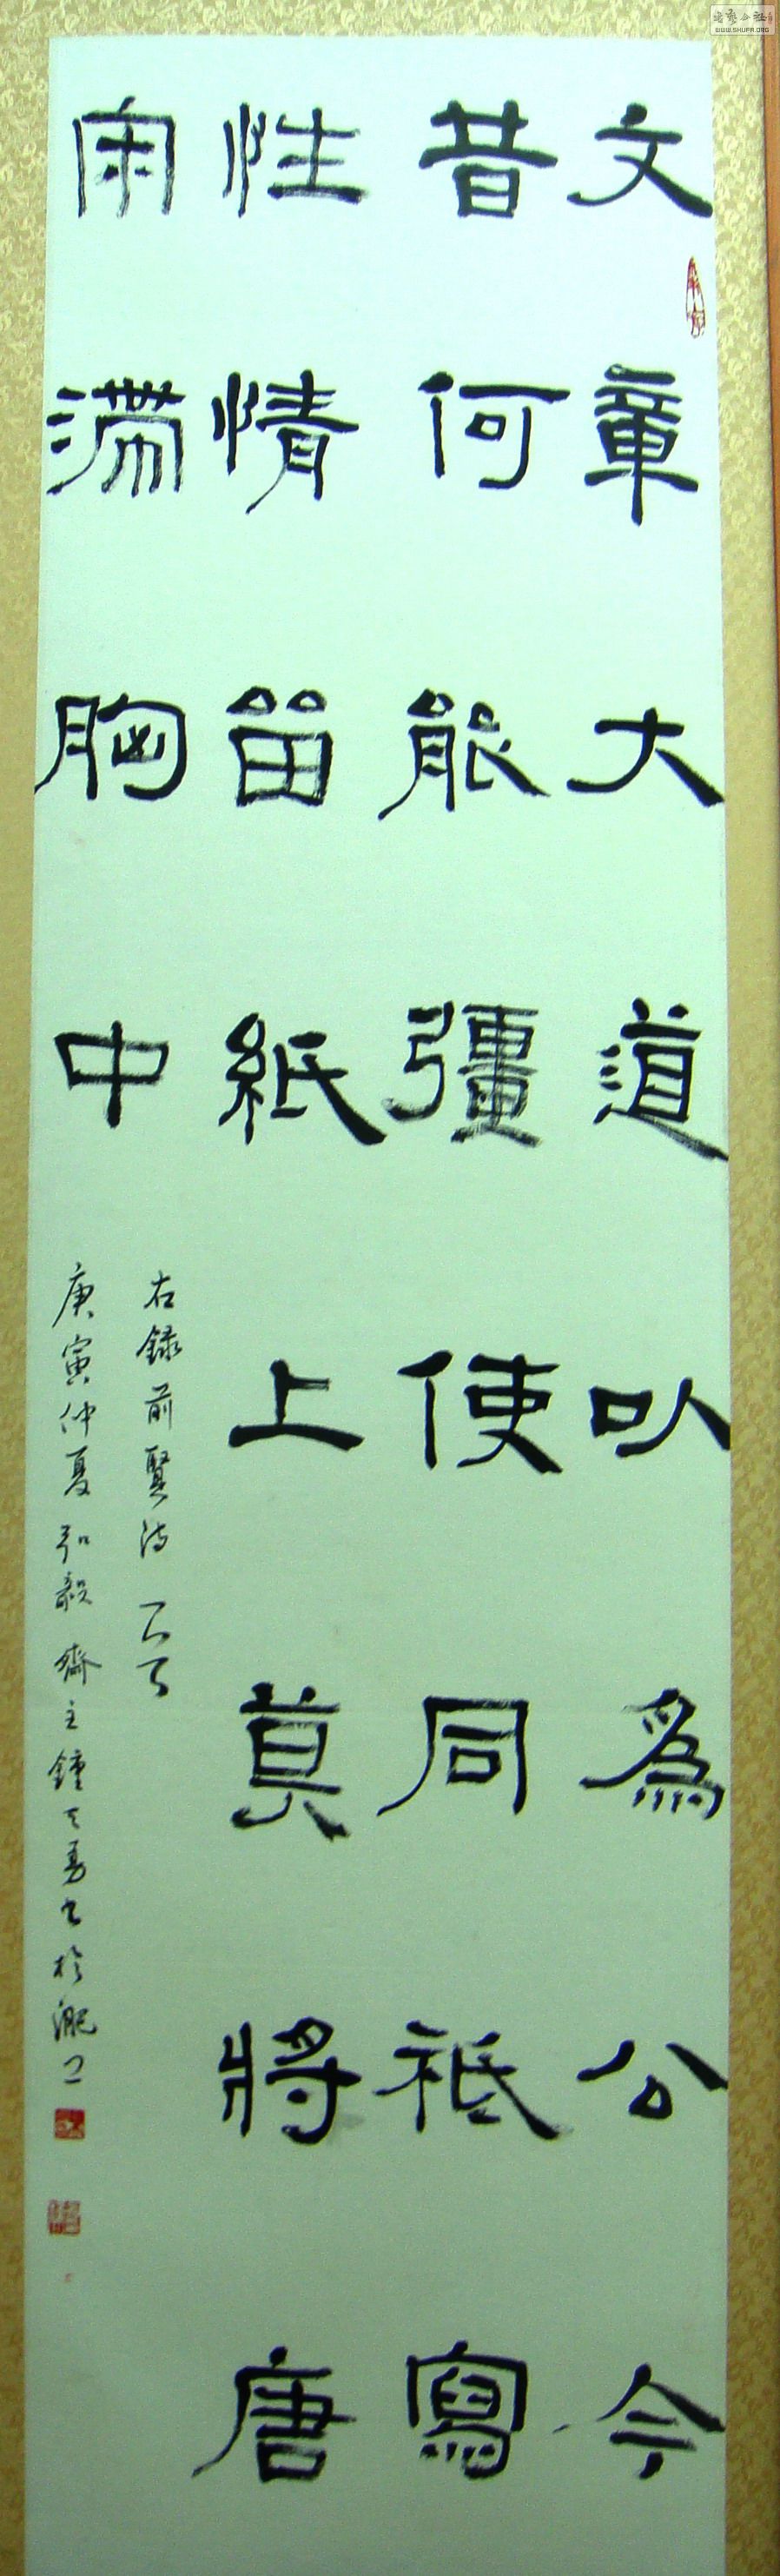 文章大道以爲公今
昔何能彊使同祇寫
性情留紙上莫將唐
宋滯胸中
右錄前賢詩一首
庚寅仲夏弘毅齋主鍾勇書於淝上
WWW.SHUFA.ORG